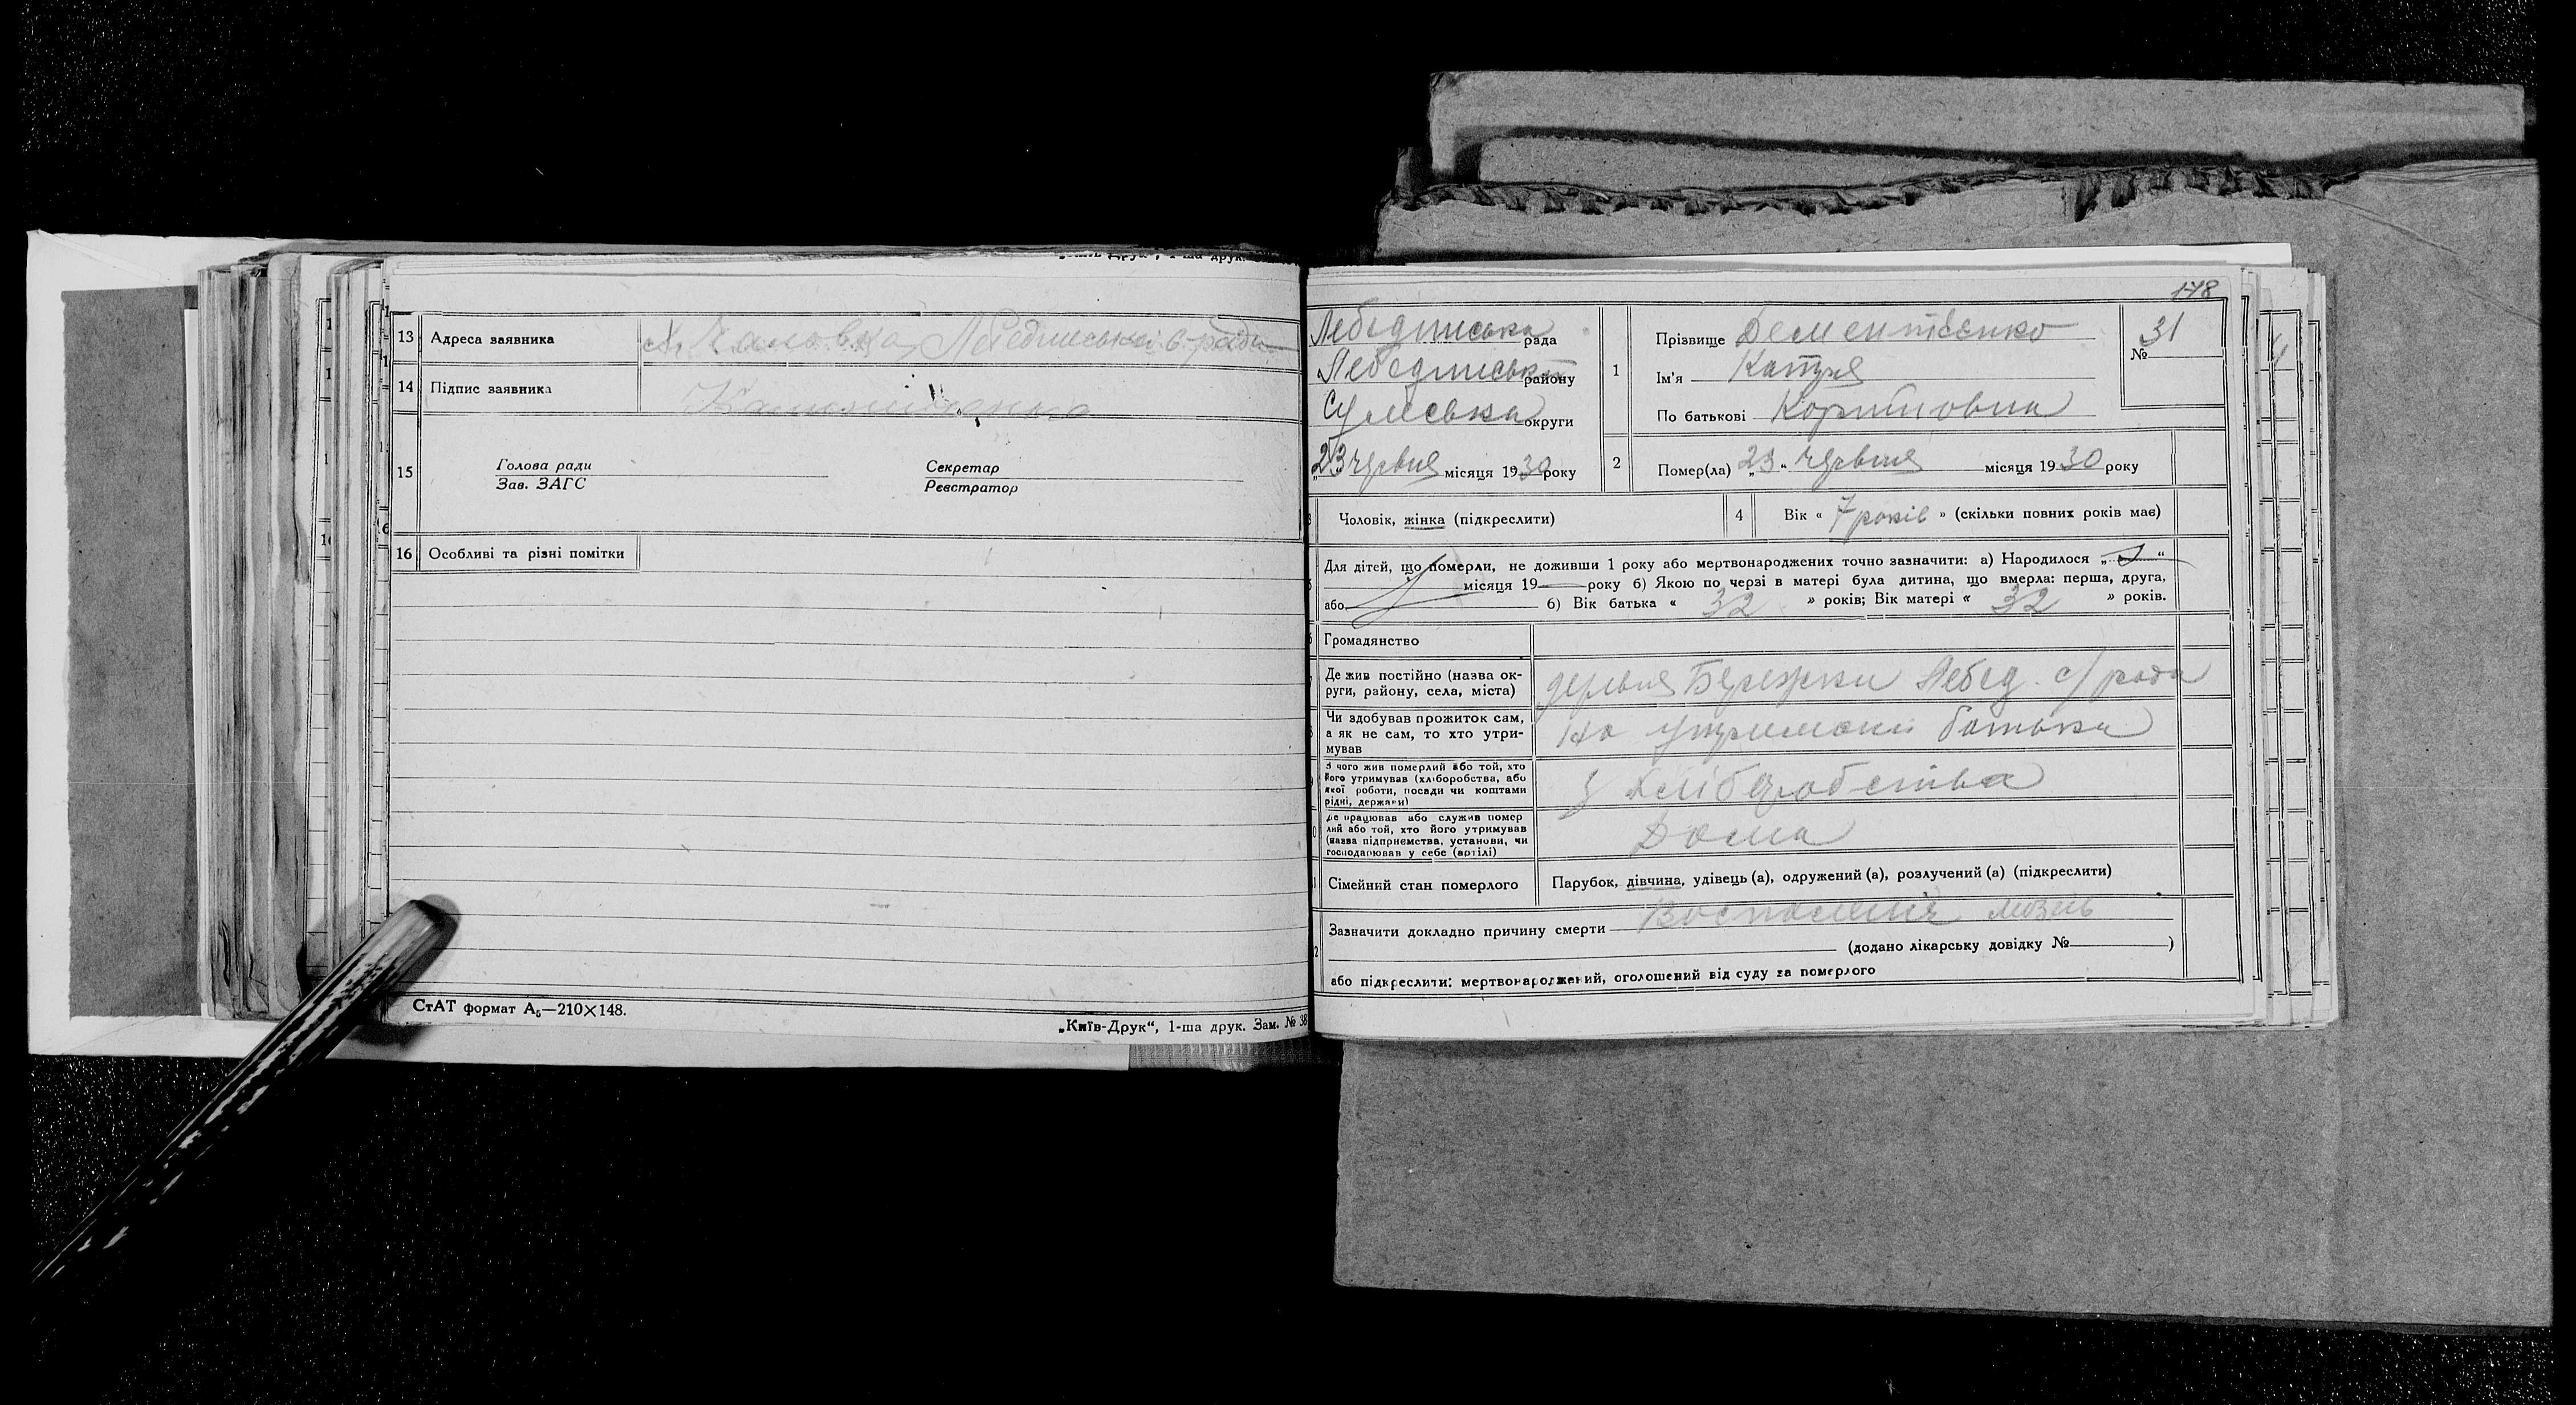 13 Адреса заявника
14 Підпис заявника
15 Голова ради Секретар
Зав. ЗАГС Реєстратор
16 Особливі та різні помітки
СтАТ формат А5—210×148.
„Київ-Друк“, 1-ша друк. Зам. № 38
178
Лебединська рада
Лебединська району
Сумська округи
„23 червня місяця 1930 року
1 Прізвище Дементієнко
Ім'я Катря
По батькові
№ 31
2 Помер(ла) „23“ червня місяця 1930 року
Чоловік, жінка (підкреслити) 4 Вік « 7 років » (скільки повних років має)
Для дітей, що померли, не доживши 1 року або мертвонароджених точно зазначити: а) Народилося „ “
місяця 19 року б) Якою по черзі в матері була дитина, що вмерла: перша, друга,
або 6) Вік батька « 32 » років; Вік матері « 32 » років.
Громадянство
Де жив постійно (назва ок-
руги, району, села, міста)
деревня Бережки Лебед. с/рада
Чи здобував прожиток сам,
а як не сам, то хто утри-
мував
На утриманні батька
З чого жив померлий або той, хто
його утримував (хліборобства, або
якої роботи, посади чи коштами
рідні, держави)
З хліборобства
Де працював або служив помер
лий або той, хто його утримував
(назва підприємства, установи, чи
господарював у себе (артілі)
Дома
Сімейний стан померлого Парубок, дівчина, удівець (а), одружений (а), розлучений (а) (підкреслити)
Зазначити докладно причину смерти
(додано лікарську довідку № )
або підкреслити: мертвонароджений, оголошений від суду за померлого